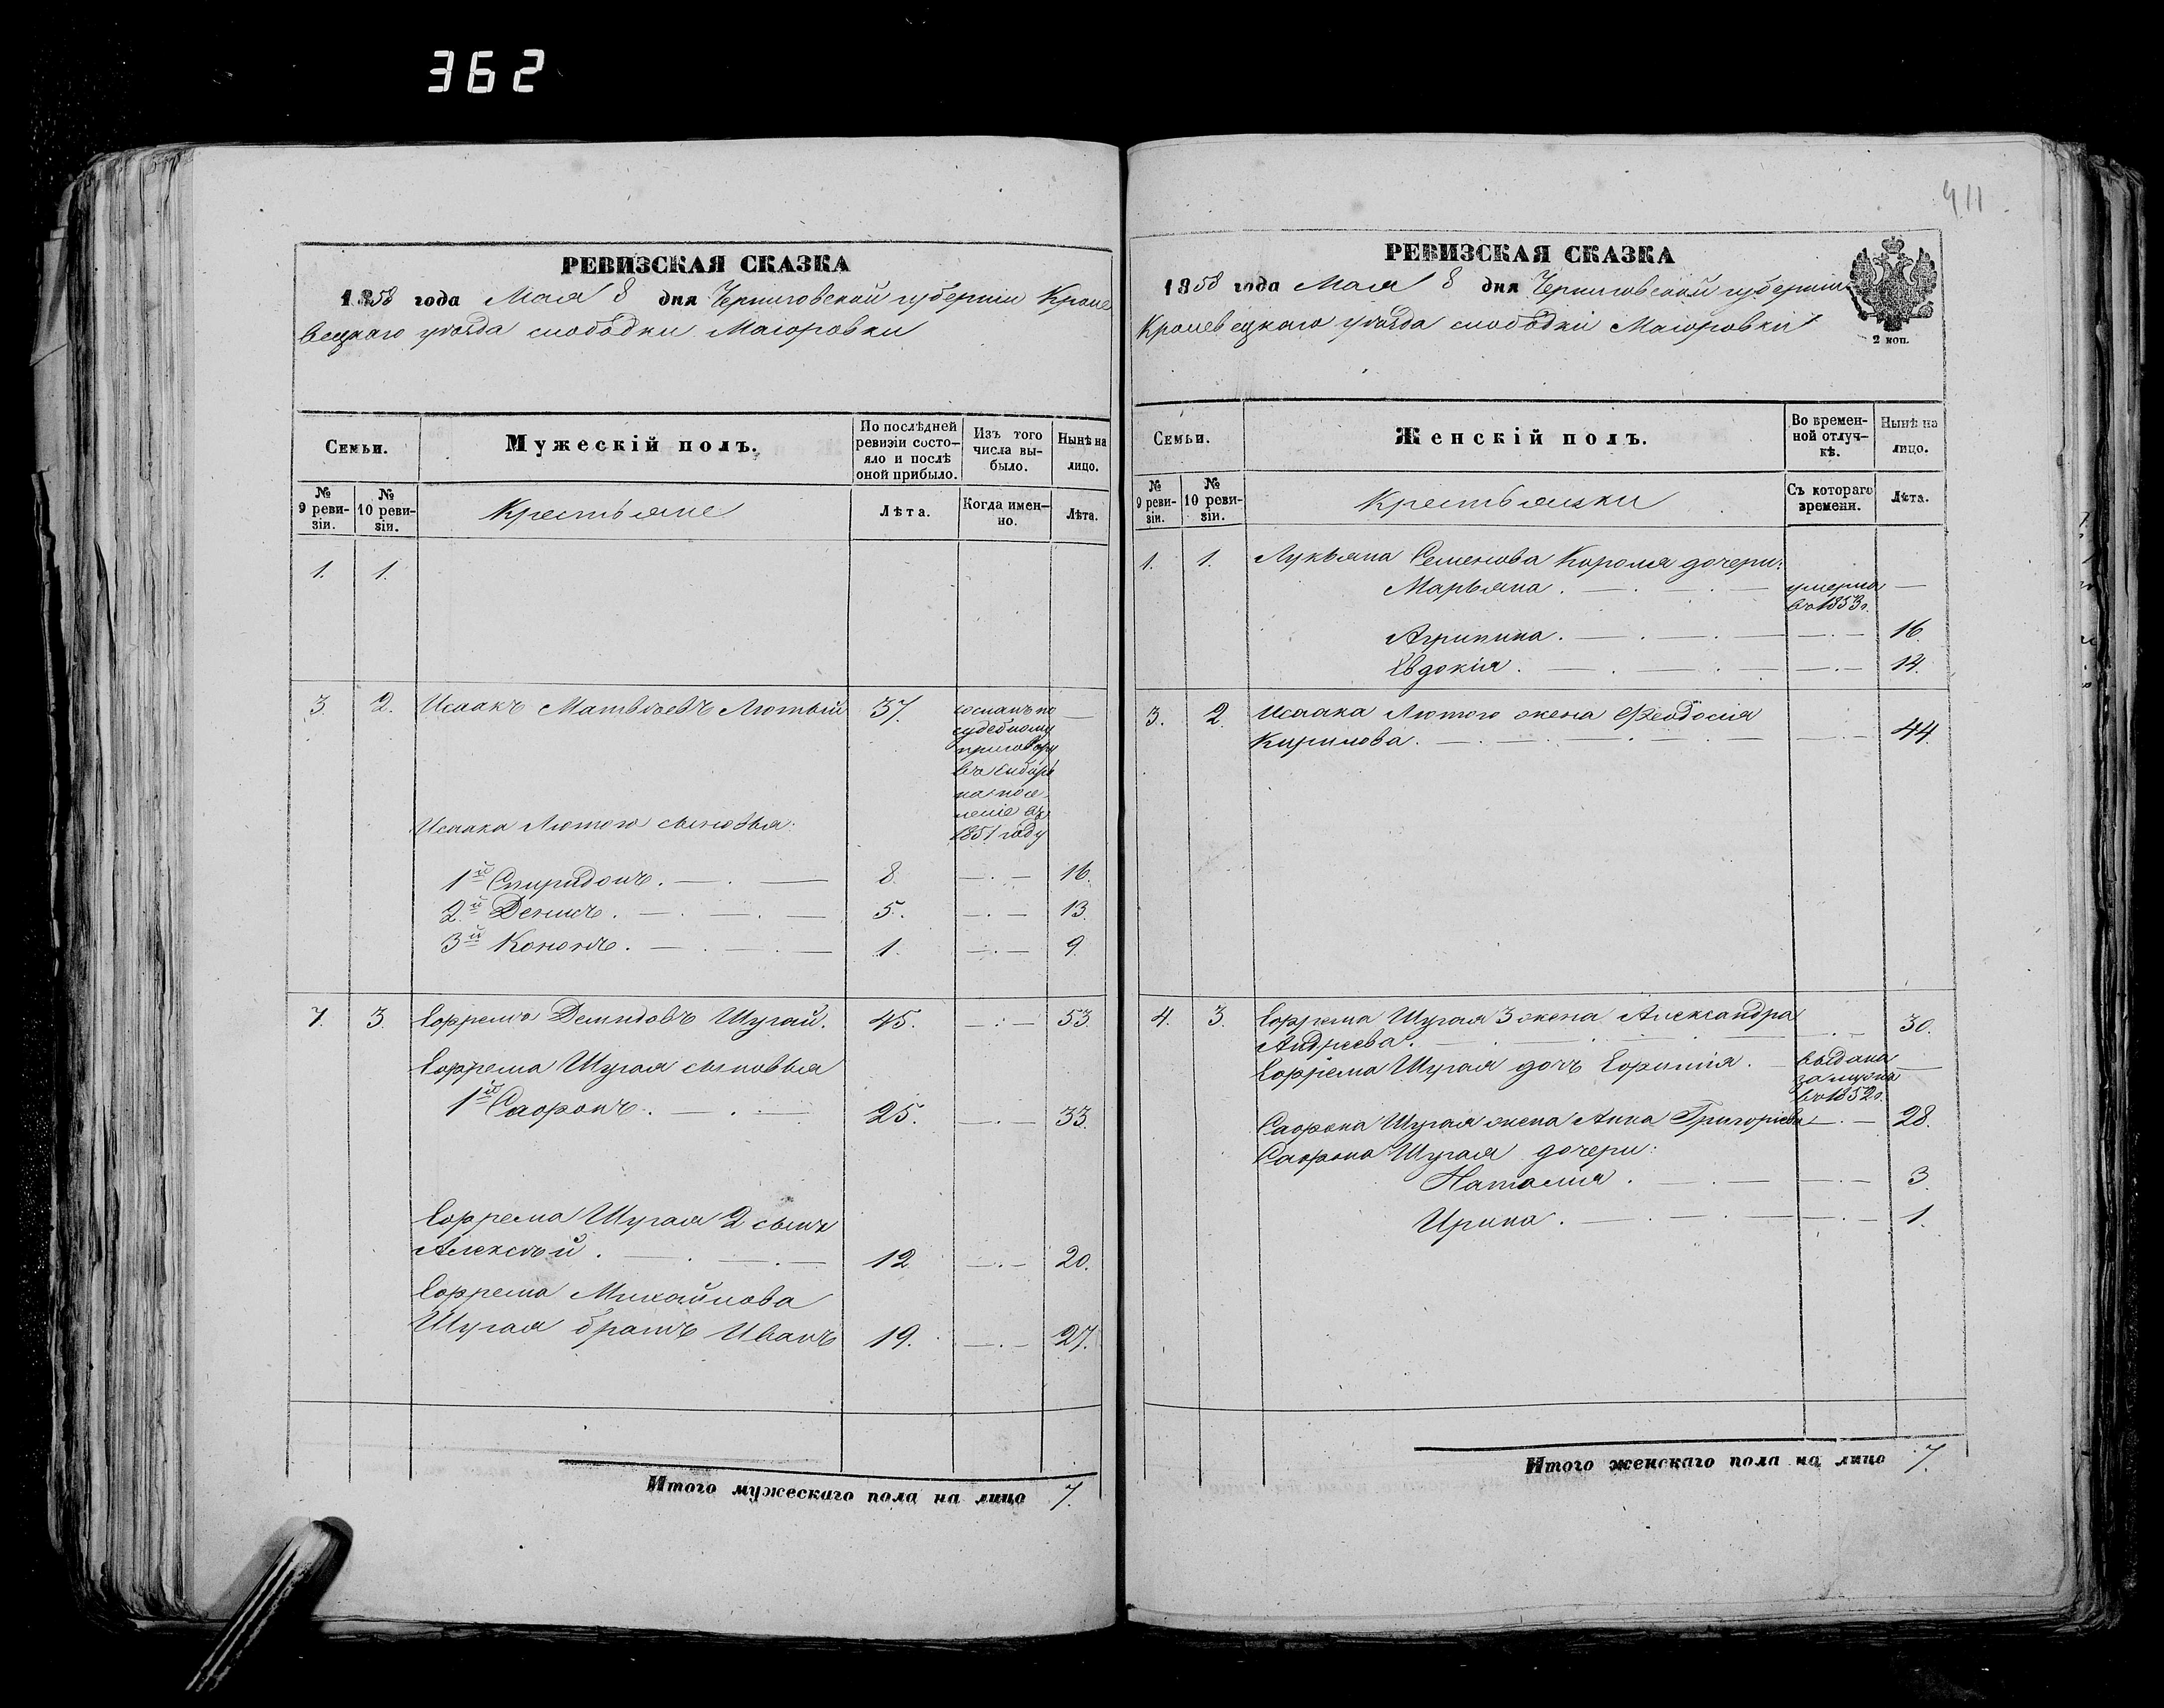 362
411
РЕВИЗСКАЯ СКАЗКА
1858 года Мая 8 дня Черниговской губернии Кроле
вецкаго уѣзда слободки Маіоровки
Семьи.
Мужескій полъ.
По послѣдней ревизіи состо-
яло и послѣ оной прибыло.
Изъ того числа вы-
было.
Нынѣ на лицо.
№ 9 реви-
зіи.
№ 10 реви-
зіи.
Крестьяне
Лѣта.
Когда имен-
но.
Лѣта.
1. 1.
3. 2. Исаакъ Матвѣевъ Лютый 37. —
сосланъ по
судебному
приговору
въ Сибирь
на посе-
леніе въ
1851 году
Исаака Лютого сыновья:
1й Спиридонъ. 8. 16.
2й Денисъ. 5. 13.
3й Кононъ. 1. 9.
3. Ефремъ Демидовъ Шугай. 45. 53.
Ефрема Шугая сыновья
1й Сафронъ. 25. 33.
Ефрема Шугая 2 сынъ
Алексѣй. 12. 20.
Ефрема Михайлова
Шугая братъ Иванъ 19. 27.
Итого мужескаго пола на лицо 7.
РЕВИЗСКАЯ СКАЗКА
1858 года Мая 8 дня Черниговской губерніи
Кролевецкаго уѣзда слободки Маіоровки
2 коп.
Семьи.
Женскій полъ.
Во времен-
ной отлуч-
кѣ.
Нынѣ на лицо.
№ 9 реви-
зіи.
№ 10 реви-
зіи.
Крестьянки
Съ котораго времени.
Лѣта.
1. 1. Лукьяна Семенова Короля дочери:
Марьяна. умерла —
въ 1853г.
Агрипина. 16.
Евдокія. 14.
3. 2. Исаака Лютого жена Феодосія
Кирилова. 44.
4. 3. Ефрема Шугая 3 жена Александра
Андреева. 30.
Ефрема Шугая дочь Ефимія. выдана —
замужъ
въ 1852г.
Сафрона Шугая жена Анна Григорьева 28.
Сафрона Шугая дочери:
Наталия. 3.
Ирина. 1.
Итого женскаго пола на лицо 7.